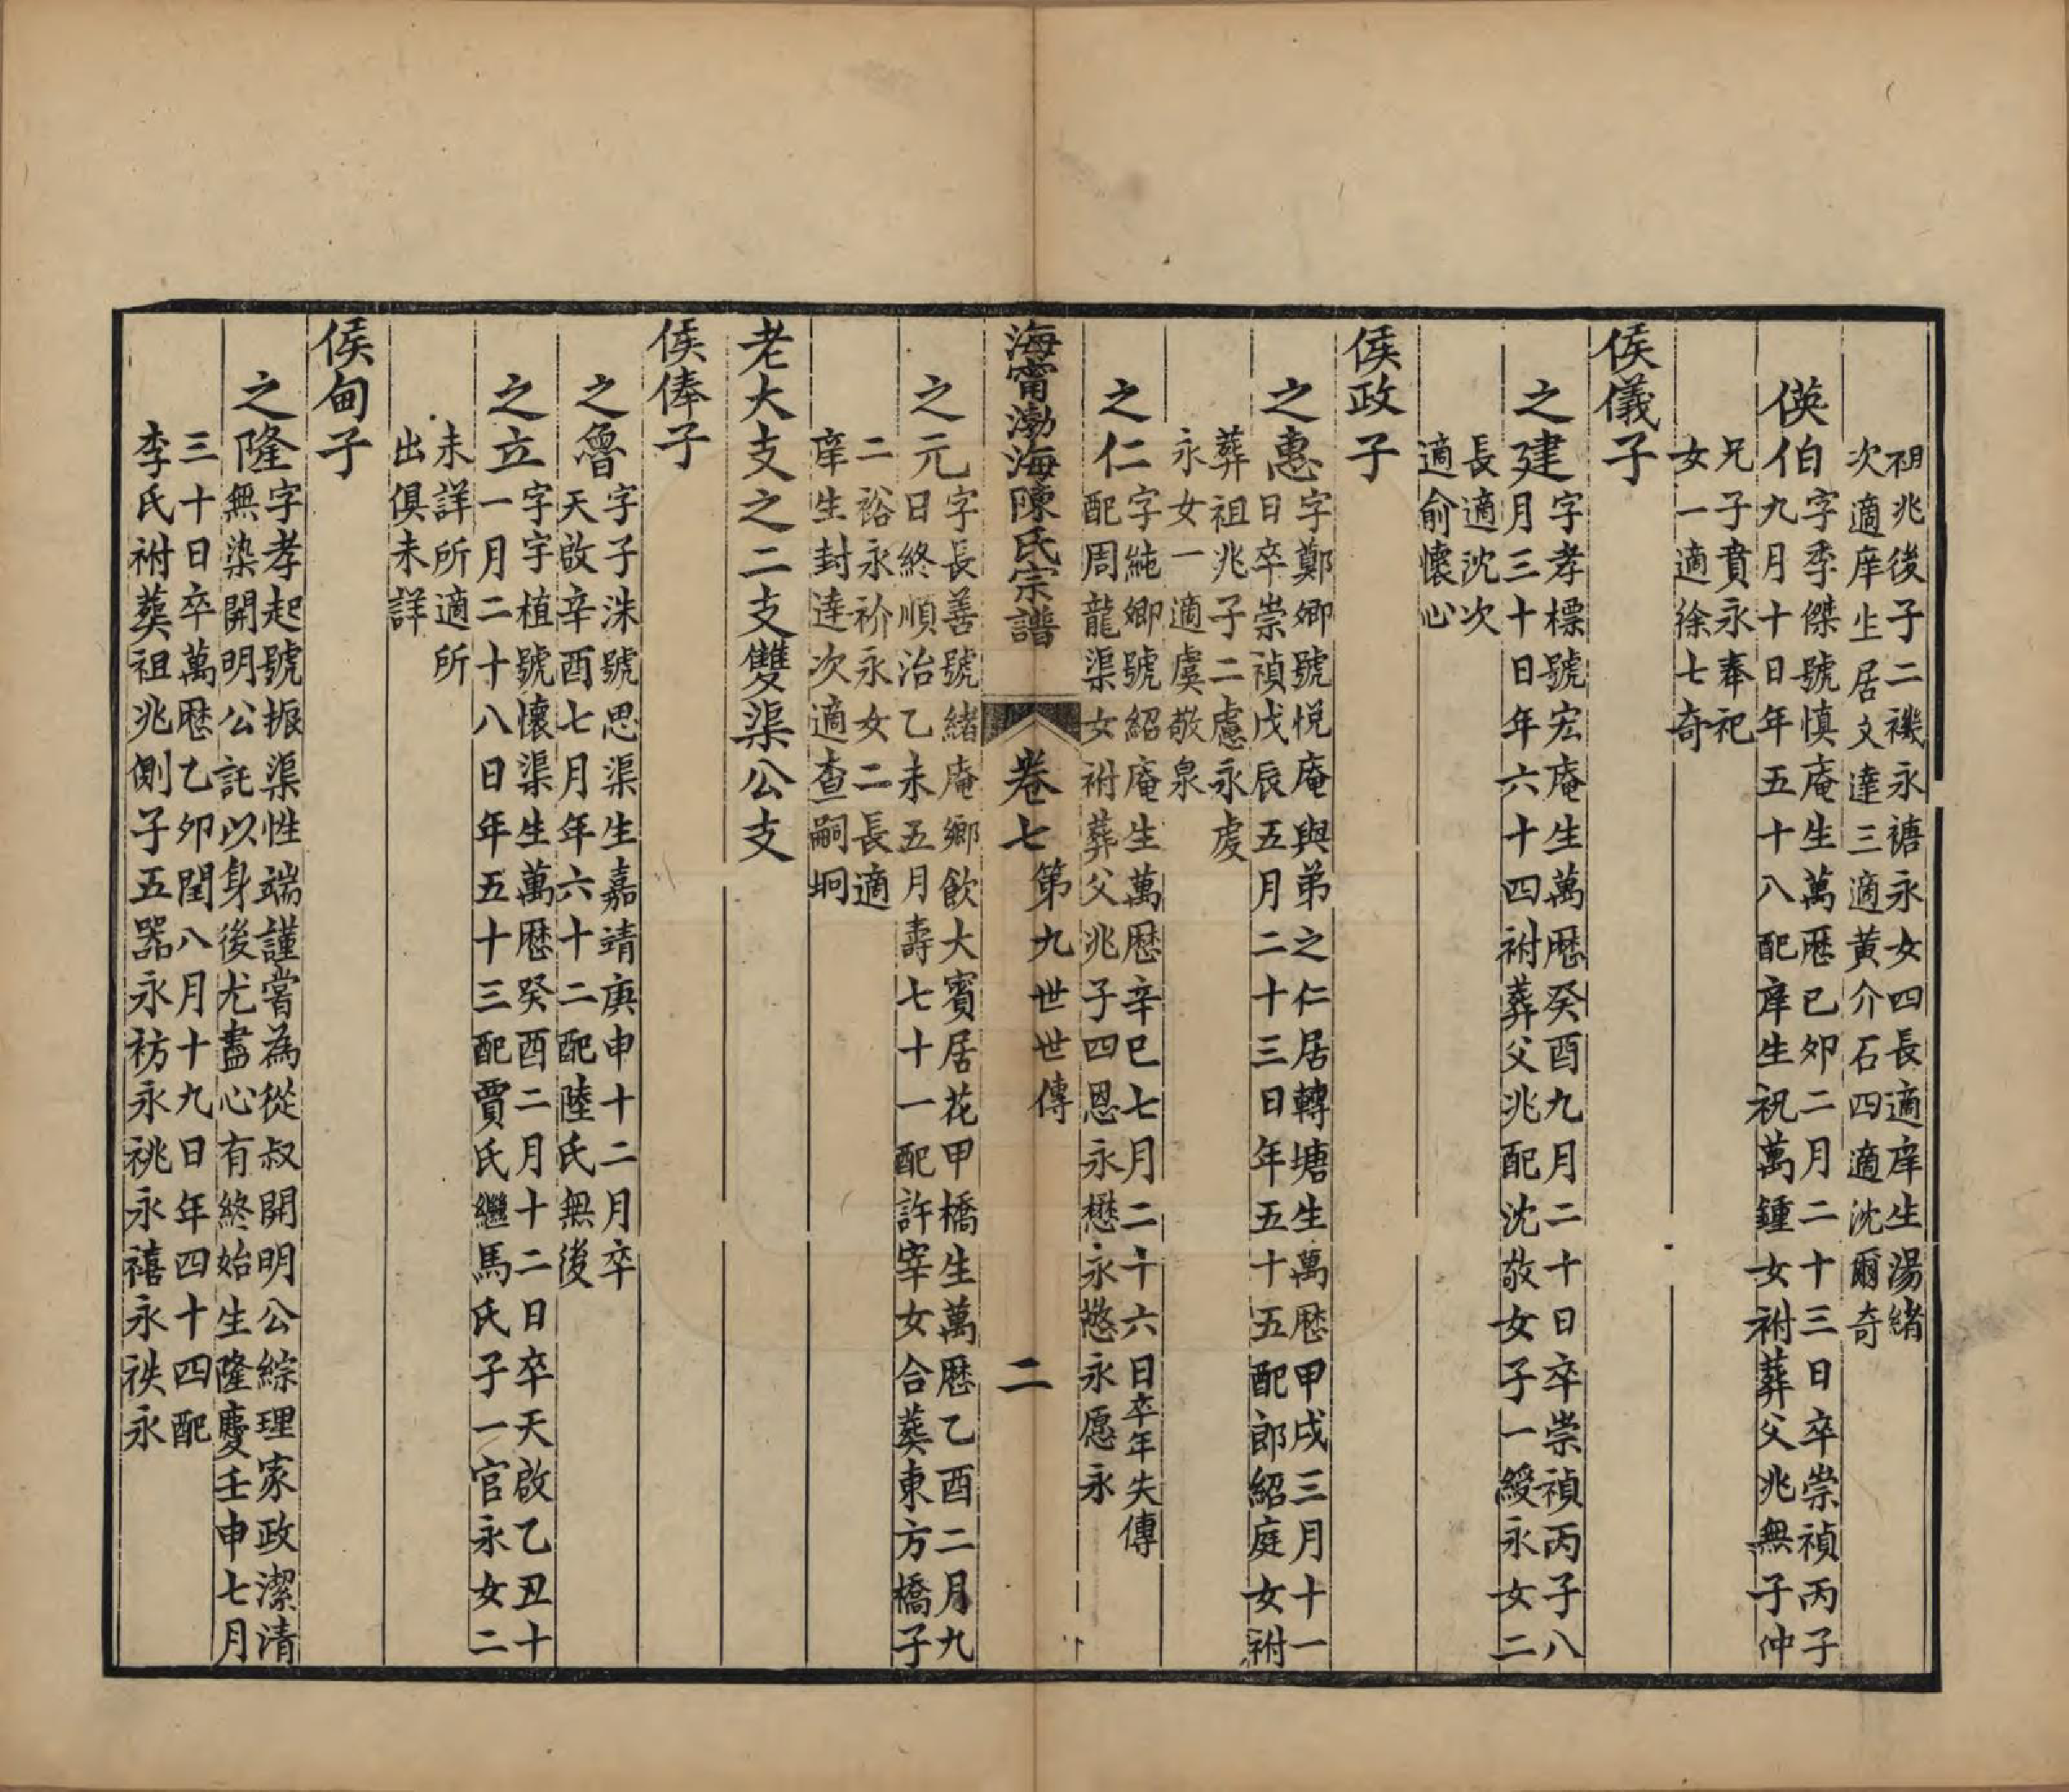 祖兆後子二禨永禟永女四長適庠生湯緒
次適庠生居文達三適黃介石四適沈爾奇
偀伯
字季傑號慎庵生萬曆己卯二月二十三日卒崇禎丙子
九月十日年五十八配庠生祝萬鍾女祔葬父兆無子仲
兄子賁永奉祀
女一適徐七奇
侯儀子
之建
字孝標號宏庵生萬曆癸酉九月二十日卒崇禎丙子八
月三十日年六十四祔葬父兆配沈敬女子一綬永女二
長適沈次
適俞懷心
侯政子
之惠
字鄭卿號悅庵與弟之仁居轉塘生萬曆甲戌三月十一
日卒崇禎戊辰五月二十三日年五十五配郎紹庭女祔
葬祖兆子二慮永䖍
永女一適虞敬泉
之仁
字純卿號紹庵生萬曆辛巳七月二十六日卒年失傳
配周龍渠女祔葬父兆子四恩永懋永慜永愿永
海甯渤海陳氏宗譜 卷七 第九世世傳 二
之元
字長善號緒庵鄉飲大賓居花甲橋生萬曆乙酉二月九
日終順治乙未五月壽七十一配許宰女合葬東方橋子
二裕永衸永女二長適
庠生封達次適查嗣坰
老大支之二支雙渠公支
侯俸子
之魯
字子洙號思渠生嘉靖庚申十二月卒
天啟辛酉七月年六十二配陸氏無後
之立
字宇植號懷渠生萬曆癸酉二月十二日卒天啟乙丑十
一月二十八日年五十三配賈氏繼馬氏子一官永女二
未詳所適所
出俱未詳
侯甸子
之隆
字孝起號振渠性端謹嘗為從叔開明公綜理家政潔清
無染開明公託以身後尤盡心有終始生隆慶壬申七月
三十日卒萬曆乙卯閏八月十九日年四十四配
李氏祔葬祖兆側子五器永祊永祧永禧永祑永